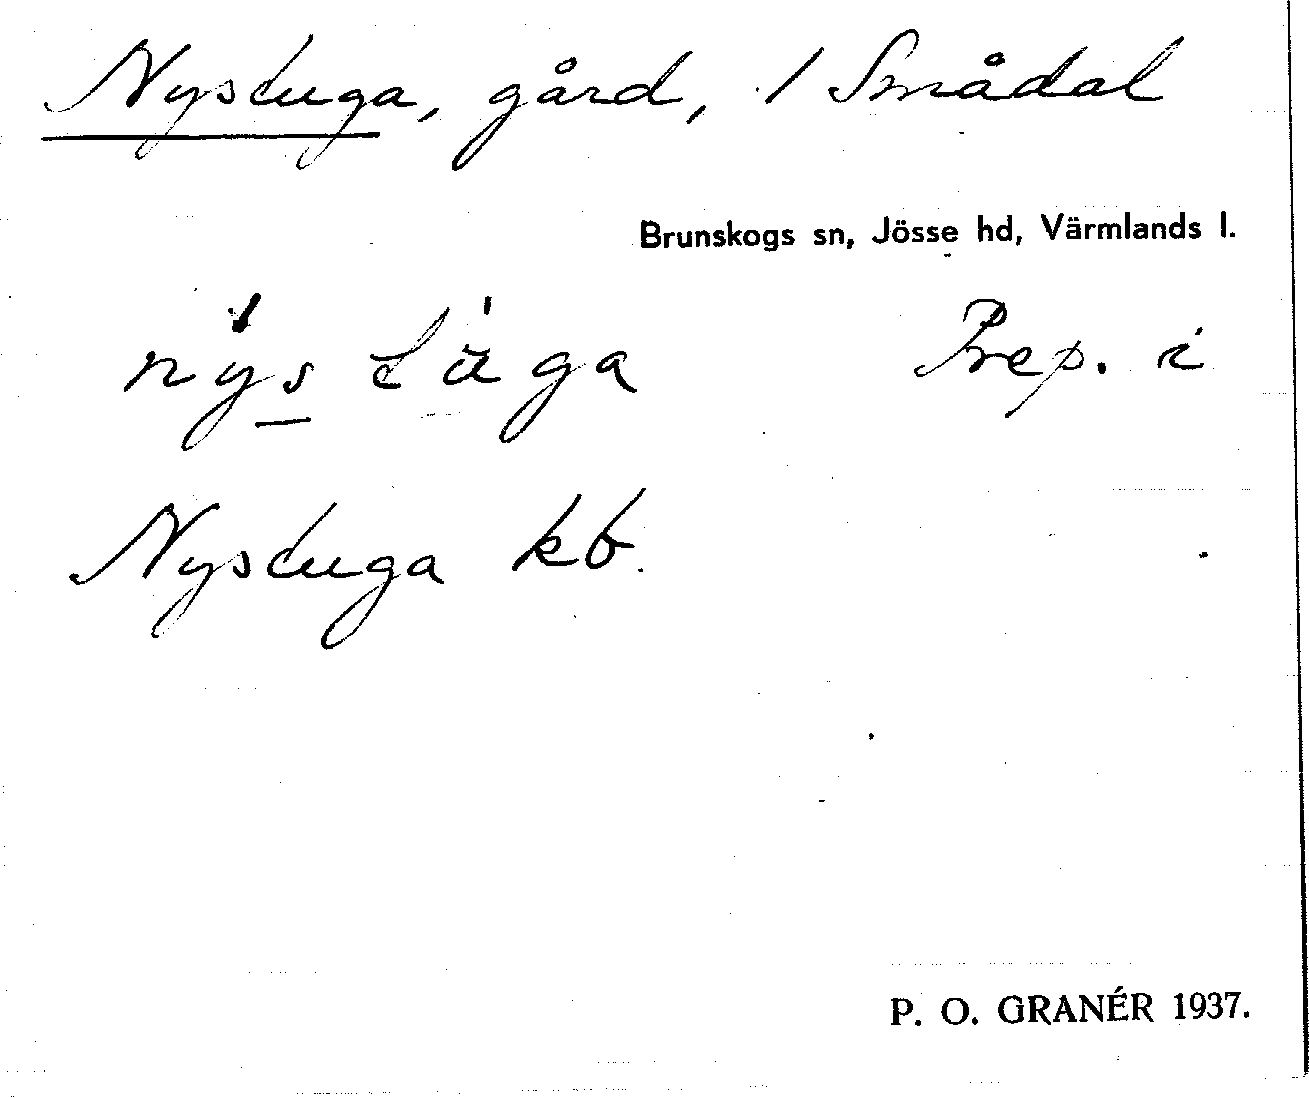 Nystuga, gård, / Smådal
Brunskogs sn, Jösse hd, Värmlands l.
Prep. i
Nystuga kb.
P. O. GRANÉR 1937.